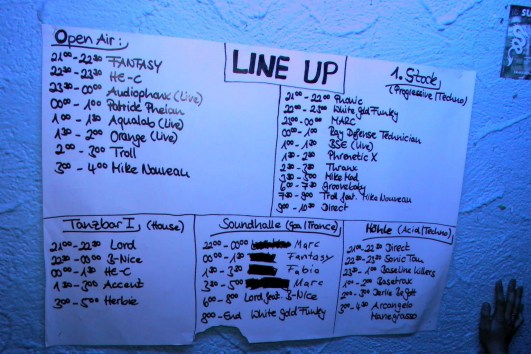 LINE UP
Open Air:
21⁰⁰ - 22³⁰ FANTASY
22³⁰ - 23³⁰ HE-C
23³⁰ - 00⁰⁰ Audiophanx (Live)
00⁰⁰ - 1⁰⁰ Patrick Phelan
1⁰⁰ - 1³⁰ Aqualab (Live)
1³⁰ - 2⁰⁰ Orange (Live)
2⁰⁰ - 3⁰⁰ Troll
3⁰⁰ - 4⁰⁰ Mike Nouveau
1. Stock
(Progressive/Techno)
21⁰⁰ - 22⁰⁰ Phonic
22⁰⁰ - 23⁰⁰ White gold Funky
23⁰⁰ - 00⁰⁰ MARC
00⁰⁰ - 1⁰⁰ Ray Defense Technician
1⁰⁰ - 1³⁰ BSE (Live)
1³⁰ - 2³⁰ Phrenetic X
2³⁰ - 3³⁰ Thranx
3³⁰ - 5⁰⁰ Mike Mad
5⁰⁰ - 6⁰⁰ Groovebaby
7³⁰ - 9⁰⁰ Trol feat. Mike Nouveau
9⁰⁰ - 10³⁰ Direct
Tanzbar I (House)
21⁰⁰ - 22³⁰ Lord
22³⁰ - 00⁰⁰ B-Nice
00⁰⁰ - 1³⁰ HE-C
1³⁰ - 3⁰⁰ Accent
3⁰⁰ - 5⁰⁰ Herbie
Soundhalle (Goa/Trance)
22⁰⁰ - 00⁰⁰ Marc
00⁰⁰ - 1³⁰ Fantasy
1³⁰ - 3³⁰ Fabio
3³⁰ - 5⁰⁰ Marc
6⁰⁰ - 8⁰⁰ Lord feat. B-Nice
8⁰⁰ - End White gold Funky
Höhle (Acid/Techno)
21⁰⁰ - 22³⁰ Direct
22³⁰ - 23³⁰ Sonic Tom
23³⁰ - 1⁰⁰ Baseline Killers
1⁰⁰ - 2⁰⁰ Basetrax
2⁰⁰ - 3⁰⁰
3⁰⁰ - 4³⁰ Arcangelo